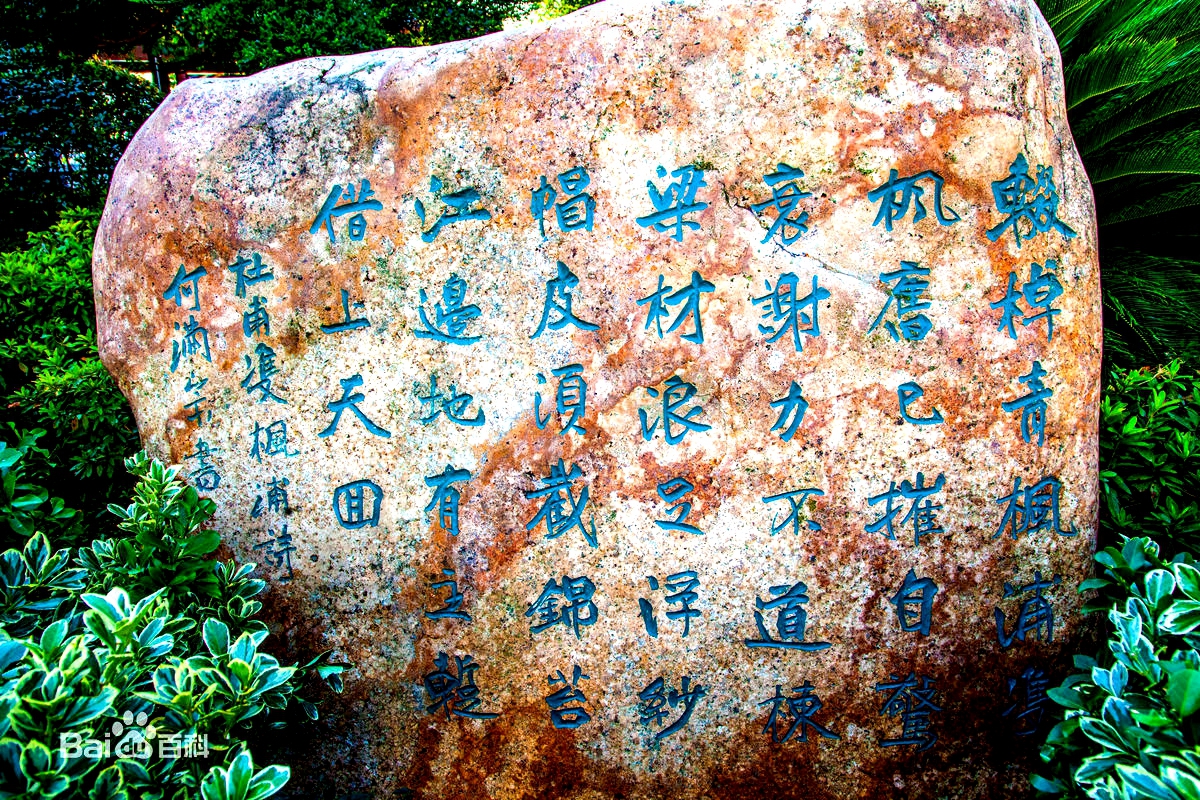 輟棹青楓浦雙
枫舊已摧自驚
衰謝力不道棟
梁材浪足浮紗
帽皮須截錦苔
江邊地有主暫
借上天囬
杜甫雙楓浦詩
何满書
Bai百科